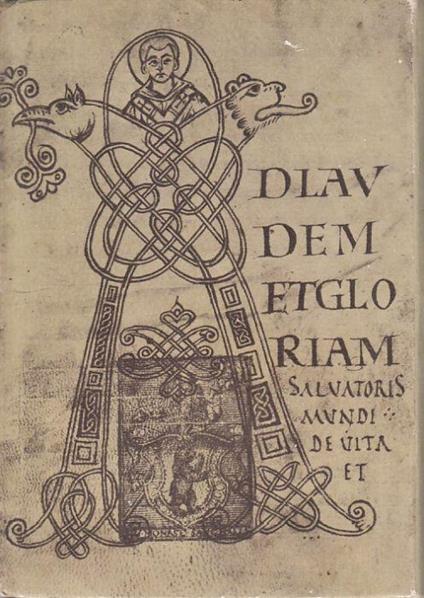 A
DLAV
DEM
ETGLO
RIAM
SALVATORIS
MUNDI
DE VITA
ET